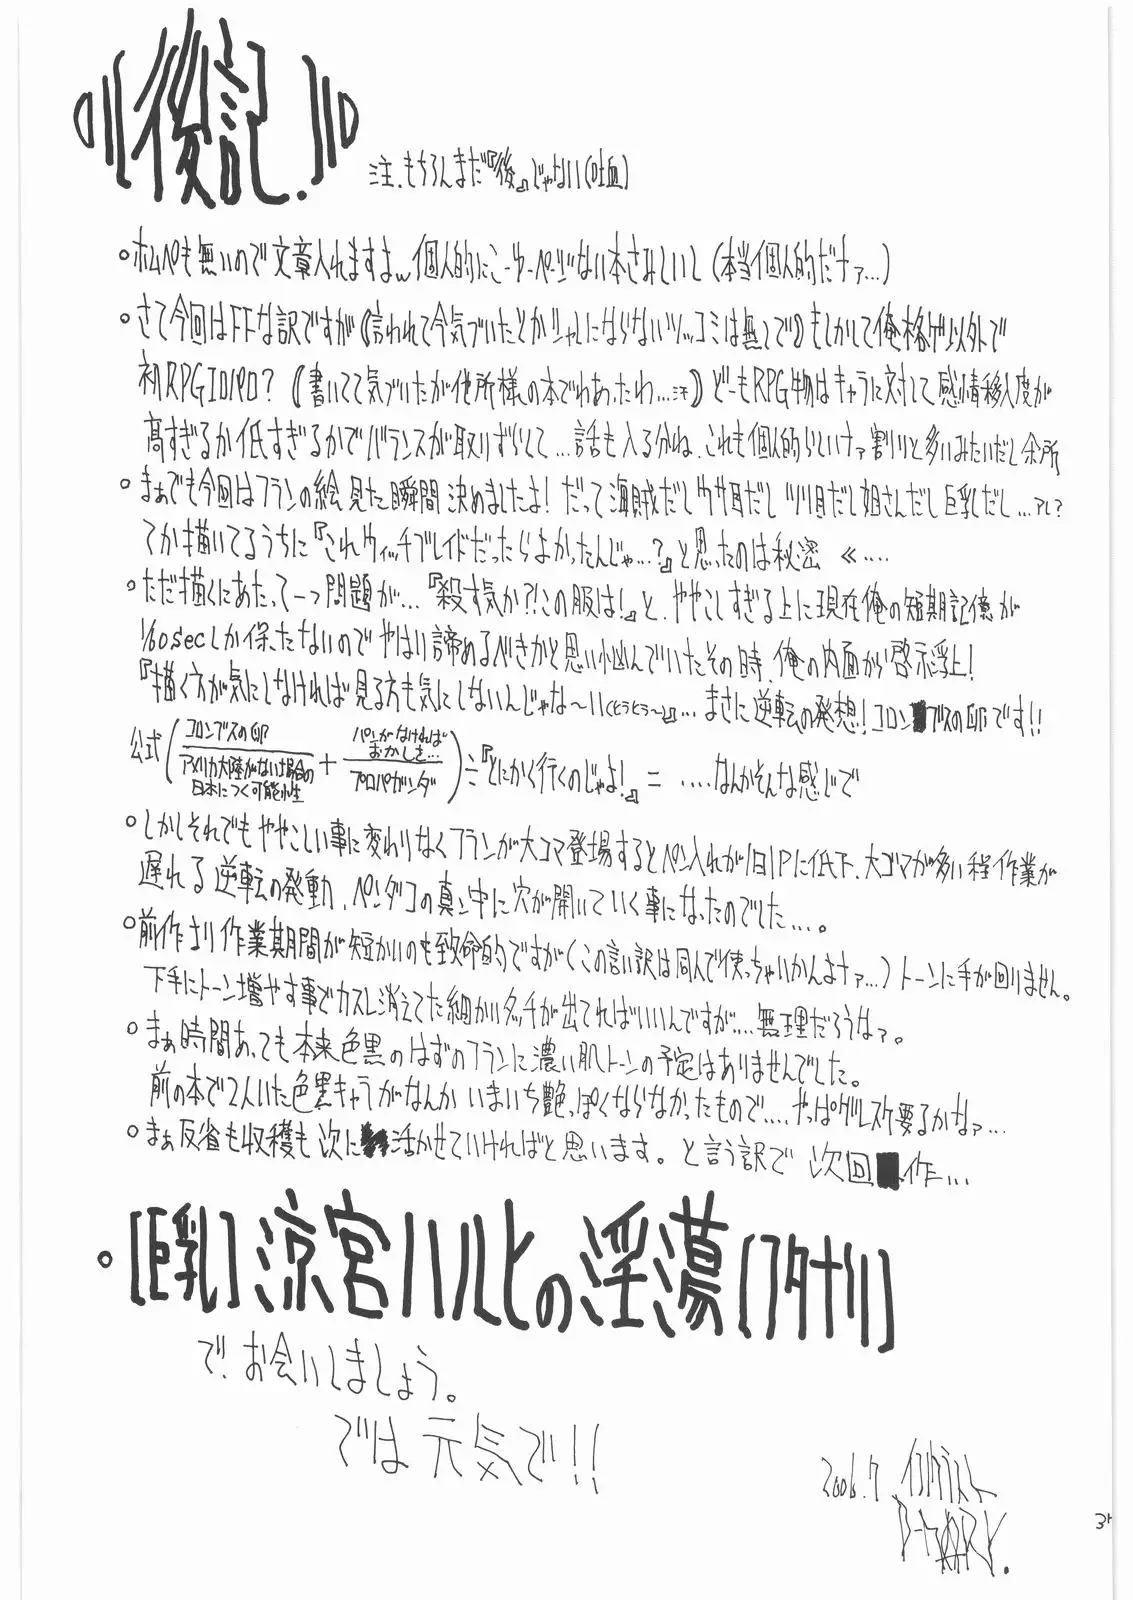 後記.
注.もちろんまだ『後』じゃない(吐血)
。ホムペも無いので文章入れますよw 個人的にこーゆーページない本さみしいし(本当個人的だナァ…)
。さて今回はFFな訳ですが(言われて今気づいたとかシャレにならないツッコミは無しで)もしかして俺格ゲ以外で
初RPGエロパロ?(書いてて気づいたが他所様の本でわあったわ…汗)どーもRPG物はキャラに対して感情移入度が
高すぎるか低すぎるかでバランスが取りずらくて…話も入る分ね、これも個人的らしいナァ割りと多いみたいだし余所
。まぁでも今回はフランの絵見た瞬間決めましたよ!だって海賊だしウサ耳だしツリ目だし姐さんだし巨乳だし…アレ?
てか描いてるうちに『これウィッチブレイドだったらよかったんじゃ…?』と思ったのは秘密 《‥‥
。ただ描くにあたって一つ問題が…『殺す気か?!この服は!』と、ややこしすぎる上に現在俺の短期記憶が
1/60secしか保たないのでやはり諦めるべきかと思い悩んでいたその時、俺の内面から啓示浮上!
『描く方が気にしなければ見る方も気にしないんじゃな〜い(ヒラヒラ〜)』…まさに逆転の発想!コロンブスの卵です!!
公式(コロンブスの卵/アメリカ大陸がない場合の日本につく可能性+パンがなければおかしを…/プロパガンダ)÷『とにかく行くのじゃよ!』=‥‥なんかそんな感じで
。しかしそれでもややこしい事に変わりなくフランが大コマ登場するとペン入れが1日1Pに低下、大ゴマが多い程作業が
遅れる逆転の発動、ペンダコの真ン中に穴が開いていく事になったのでした…。
。前作より作業期間が短かいのも致命的ですが(この言い訳は同人で使っちゃいかんよナァ…)トーンに手が回りません。
下手にトーン増やす事でカスレ消えてた細かいタッチが出てればいいんですが…無理だろうなァ。
。まぁ時間あっても本来色黒のはずのフランに濃い肌トーンの予定はありませんでした。
前の本で2人いた色黒キャラがなんかいまいち艶っぽくならなかったもので…やっぱグレスケ要るかなァ…
。まぁ反省も収穫も次に活かせていければと思います。と言う訳で 次回作…
。[巨乳]涼宮ハルヒの淫蕩[フタナリ]
で、お会いしましょう。
では 元気で!!
2006.7